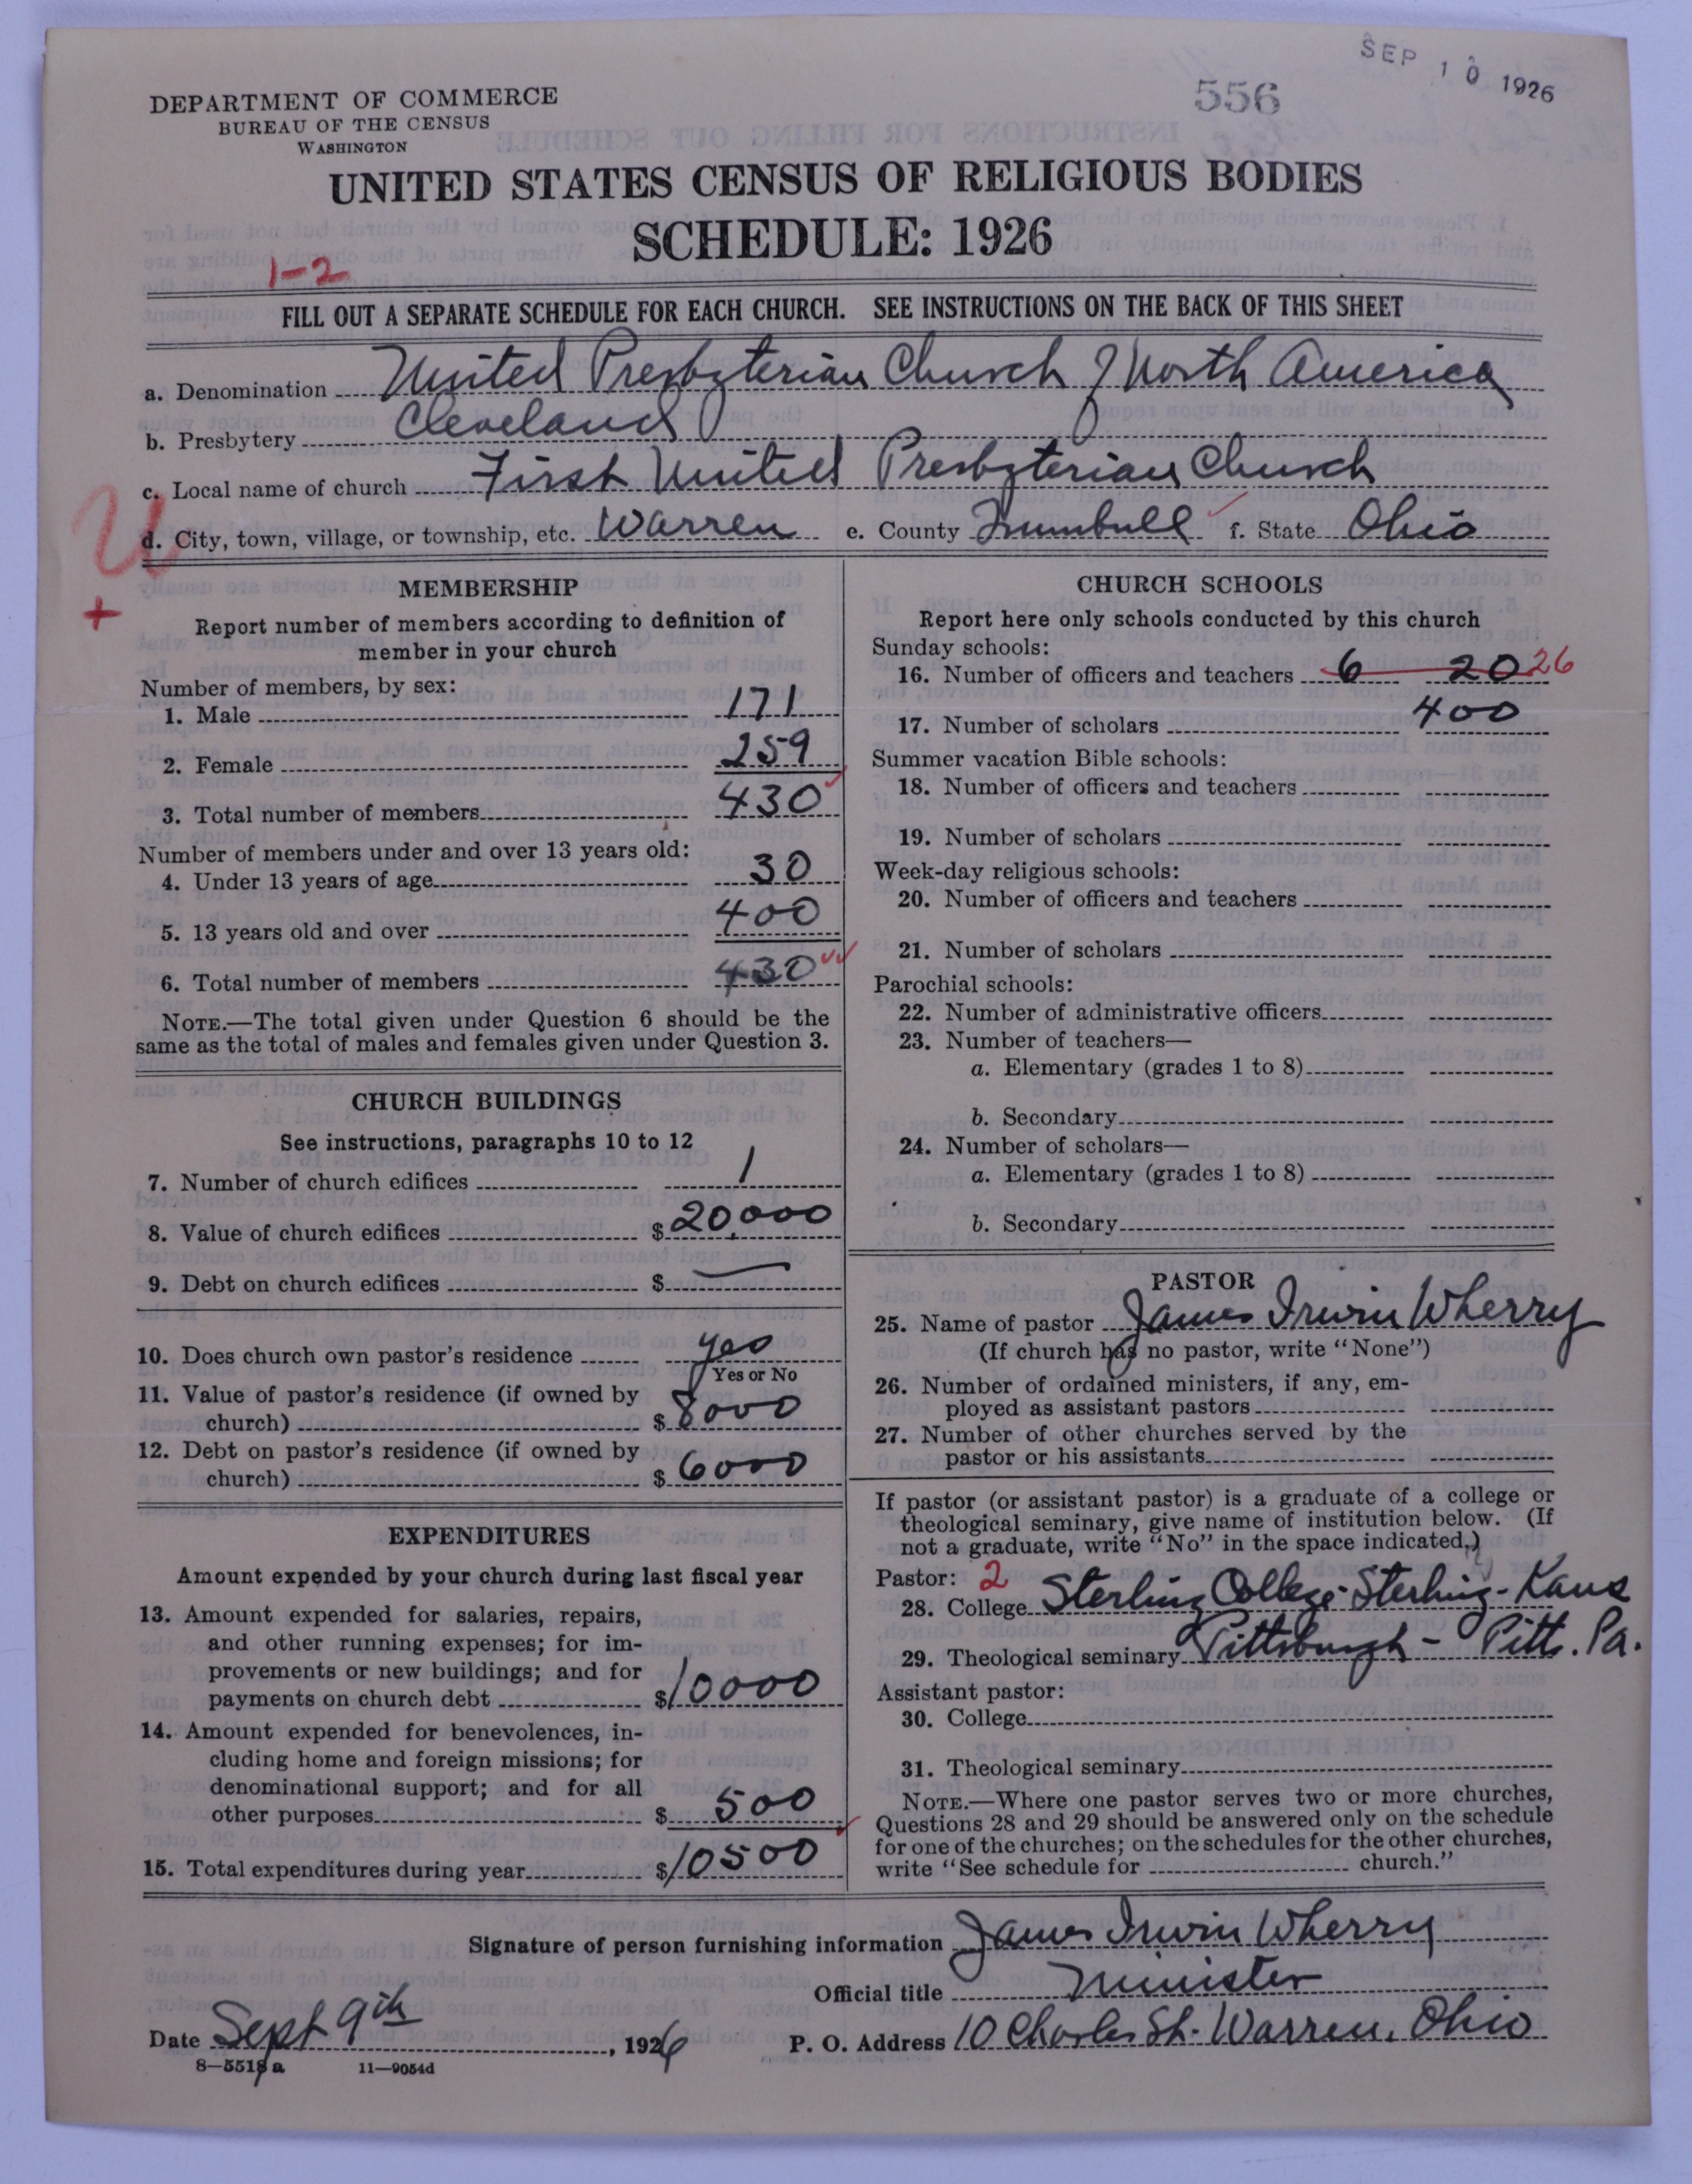 SEP 10 1926
556
DEPARTMENT OF COMMERCE
BUREAU OF THE CENSUS
WASHINGTON
UNITED STATES CENSUS OF RELIGIOUS BODIES
SCHEDULE: 1926
1-2
FILL OUT A SEPARATE SCHEDULE FOR EACH CHURCH. SEE INSTRUCTIONS ON THE BACK OF THIS SHEET
a. Denomination United Presbyterian Church of North America
b. Presbytery Cleveland
c. Local name of church First United Presbyterian Church
d. City, town, village, or township, etc. Warren e. County Trumbull f. State Ohio
U
+
MEMBERSHIP
Report number of members according to definition of
member in your church
Number of members, by sex:
1. Male 171
2. Female 259
3. Total number of members 430
Number of members under and over 13 years old:
4. Under 13 years of age 30
5. 13 years old and over 400
6. Total number of members 430
NOTE.—The total given under Question 6 should be the
same as the total of males and females given under Question 3.
CHURCH BUILDINGS
See instructions, paragraphs 10 to 12
7. Number of church edifices 1
8. Value of church edifices $ 20,000
9. Debt on church edifices $ —
10. Does church own pastor's residence yes
Yes or No
11. Value of pastor's residence (if owned by
church) $ 8000
12. Debt on pastor's residence (if owned by
church) $ 6000
EXPENDITURES
Amount expended by your church during last fiscal year
13. Amount expended for salaries, repairs,
and other running expenses; for im-
provements or new buildings; and for
payments on church debt $ 10000
14. Amount expended for benevolences, in-
cluding home and foreign missions; for
denominational support; and for all
other purposes $ 500
15. Total expenditures during year $ 10500
CHURCH SCHOOLS
Report here only schools conducted by this church
Sunday schools:
16. Number of officers and teachers 6 20 26
17. Number of scholars 400
Summer vacation Bible schools:
18. Number of officers and teachers
19. Number of scholars
Week-day religious schools:
20. Number of officers and teachers
21. Number of scholars
Parochial schools:
22. Number of administrative officers
23. Number of teachers—
a. Elementary (grades 1 to 8)
b. Secondary
24. Number of scholars—
a. Elementary (grades 1 to 8)
b. Secondary
PASTOR
25. Name of pastor James Irwin Wherry
(If church has no pastor, write "None")
26. Number of ordained ministers, if any, em-
ployed as assistant pastors
27. Number of other churches served by the
pastor or his assistants
If pastor (or assistant pastor) is a graduate of a college or
theological seminary, give name of institution below. (If
not a graduate, write "No" in the space indicated.)
Pastor: 2
28. College Sterling College - Sterling - Kans
29. Theological seminary Pittsburgh - Pitts. Pa.
Assistant pastor:
30. College
31. Theological seminary
NOTE.—Where one pastor serves two or more churches,
Questions 28 and 29 should be answered only on the schedule
for one of the churches; on the schedules for the other churches,
write "See schedule for church."
Signature of person furnishing information James Irwin Wherry
Official title Minister
Date Sept 9th, 1926 P. O. Address 10 Charles St. Warren, Ohio
8—5518 a 11—9054d